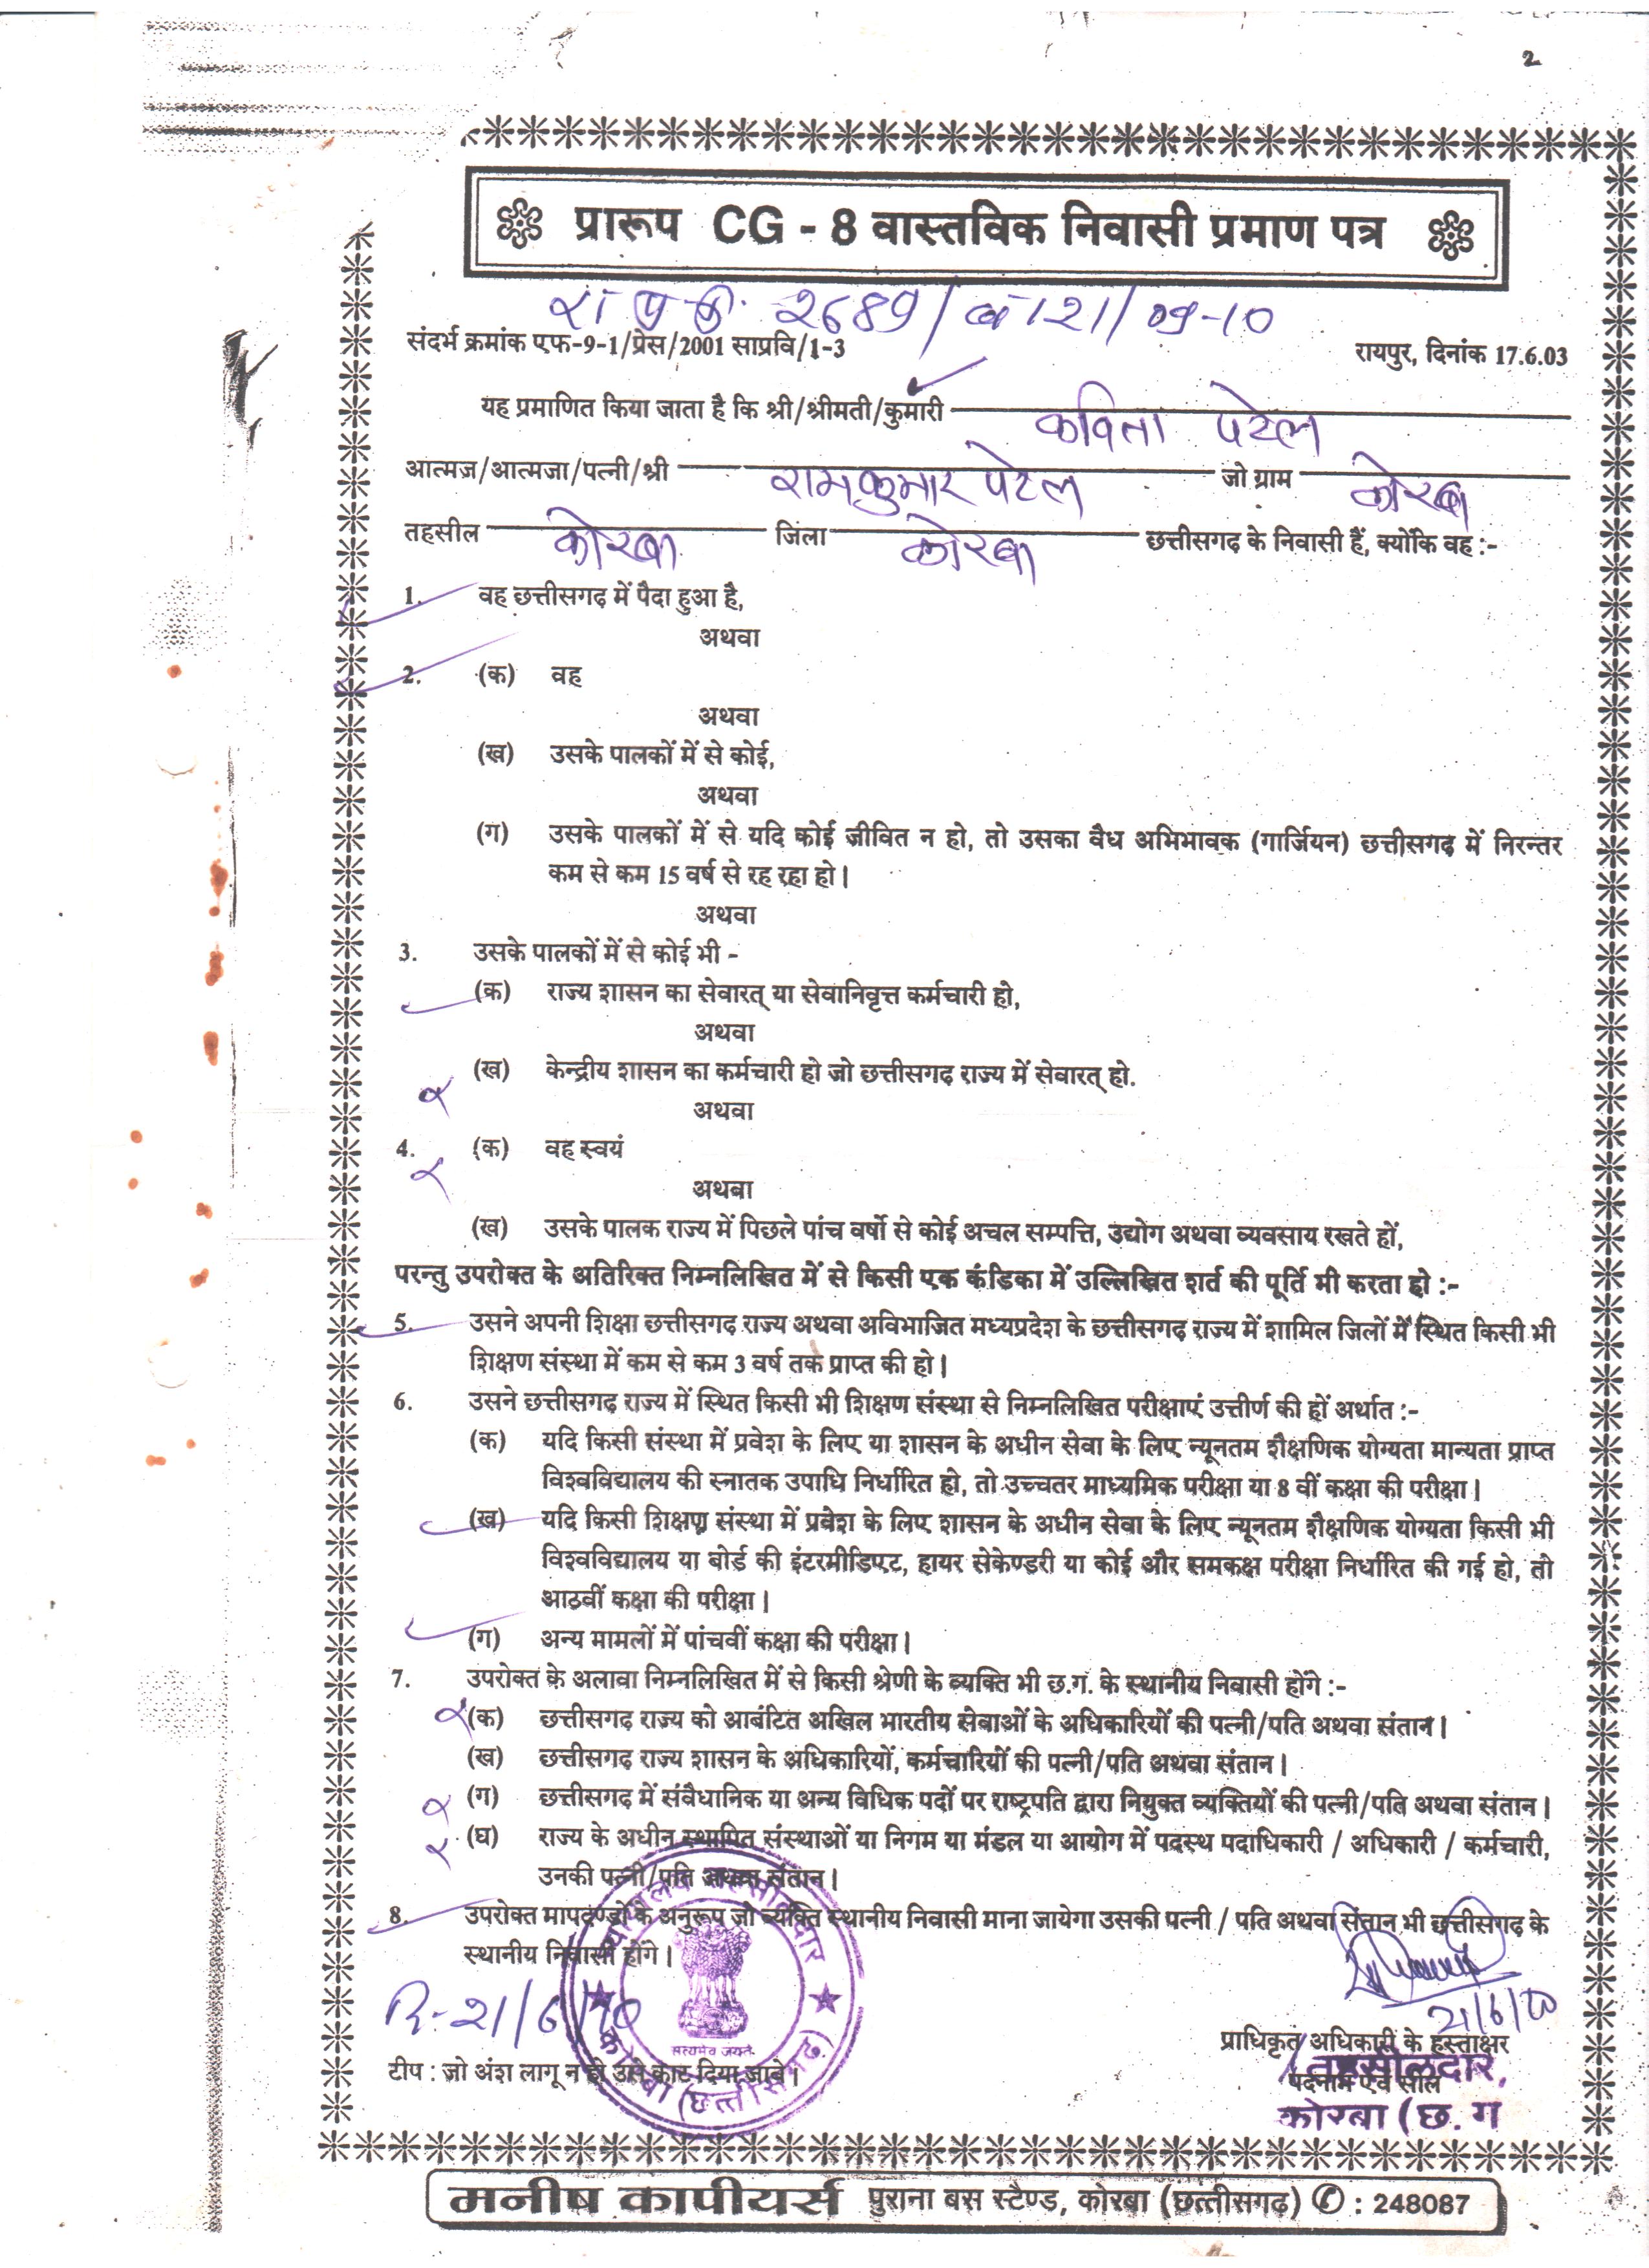 2
प्रारूप CG - 8 वास्तविक निवासी प्रमाण पत्र
रा प्र क्र. 2689/ब 121/09-10
संदर्भ क्रमांक एफ-9-1/प्रेस/2001 साप्रवि/1-3
रायपुर, दिनांक 17.6.03
यह प्रमाणित किया जाता है कि श्री/श्रीमती/कुमारी कविता पटेल
आत्मज/आत्मजा/पत्नी/श्री रामकुमार पटेल जो ग्राम कोरबा
तहसील कोरबा जिला कोरबा छत्तीसगढ़ के निवासी हैं, क्योंकि वह :-
1. वह छत्तीसगढ़ में पैदा हुआ है,
अथवा
2. (क) वह
अथवा
(ख) उसके पालकों में से कोई,
अथवा
(ग) उसके पालकों में से यदि कोई जीवित न हो, तो उसका वैध अभिभावक (गार्जियन) छत्तीसगढ़ में निरन्तर
कम से कम 15 वर्ष से रह रहा हो।
अथवा
3. उसके पालकों में से कोई भी -
(क) राज्य शासन का सेवारत् या सेवानिवृत्त कर्मचारी हो,
अथवा
(ख) केन्द्रीय शासन का कर्मचारी हो जो छत्तीसगढ़ राज्य में सेवारत् हो.
अथवा
4. (क) वह स्वयं
अथवा
(ख) उसके पालक राज्य में पिछले पांच वर्षो से कोई अचल सम्पत्ति, उद्योग अथवा व्यवसाय रखते हों,
परन्तु उपरोक्त के अतिरिक्त निम्नलिखित में से किसी एक कंडिका में उल्लिखित शर्त की पूर्ति भी करता हो :-
5. उसने अपनी शिक्षा छत्तीसगढ़ राज्य अथवा अविभाजित मध्यप्रदेश के छत्तीसगढ़ राज्य में शामिल जिलों में स्थित किसी भी
शिक्षण संस्था में कम से कम 3 वर्ष तक प्राप्त की हो।
6. उसने छत्तीसगढ़ राज्य में स्थित किसी भी शिक्षण संस्था से निम्नलिखित परीक्षाएं उत्तीर्ण की हों अर्थात :-
(क) यदि किसी संस्था में प्रवेश के लिए या शासन के अधीन सेवा के लिए न्यूनतम शैक्षणिक योग्यता मान्यता प्राप्त
विश्वविद्यालय की स्नातक उपाधि निर्धारित हो, तो उच्चतर माध्यमिक परीक्षा या 8 वीं कक्षा की परीक्षा।
(ख) यदि किसी शिक्षण संस्था में प्रवेश के लिए शासन के अधीन सेवा के लिए न्यूनतम शैक्षणिक योग्यता किसी भी
विश्वविद्यालय या बोर्ड की इंटरमीडिएट, हायर सेकेण्डरी या कोई और समकक्ष परीक्षा निर्धारित की गई हो, तो
आठवीं कक्षा की परीक्षा।
(ग) अन्य मामलों में पांचवीं कक्षा की परीक्षा।
7. उपरोक्त के अलावा निम्नलिखित में से किसी श्रेणी के व्यक्ति भी छ.ग. के स्थानीय निवासी होंगे :-
(क) छत्तीसगढ़ राज्य को आबंटित अखिल भारतीय सेवाओं के अधिकारियों की पत्नी/पति अथवा संतान।
(ख) छत्तीसगढ़ राज्य शासन के अधिकारियों, कर्मचारियों की पत्नी/पति अथवा संतान।
(ग) छत्तीसगढ़ में संवैधानिक या अन्य विधिक पदों पर राष्ट्रपति द्वारा नियुक्त व्यक्तियों की पत्नी/पति अथवा संतान।
(घ) राज्य के अधीन स्थापित संस्थाओं या निगम या मंडल या आयोग में पदस्थ पदाधिकारी / अधिकारी / कर्मचारी,
उनकी पत्नी/पति अथवा संतान।
8. उपरोक्त मापदण्डों के अनुरूप जो व्यक्ति स्थानीय निवासी माना जायेगा उसकी पत्नी / पति अथवा संतान भी छत्तीसगढ़ के
स्थानीय निवासी होंगे।
न्यायालय तहसीलदार
सत्यमेव जयते
कोरबा (छत्तीसगढ़)
दि.-21/6/10
21/6/10
प्राधिकृत अधिकारी के हस्ताक्षर
तहसीलदार,
पदनाम एवं सील
कोरबा (छ. ग
टीप : जो अंश लागू न हो उसे काट दिया जावे।
मनीष कापीयर्स पुराना बस स्टैण्ड, कोरबा (छत्तीसगढ़) ✆ : 248087